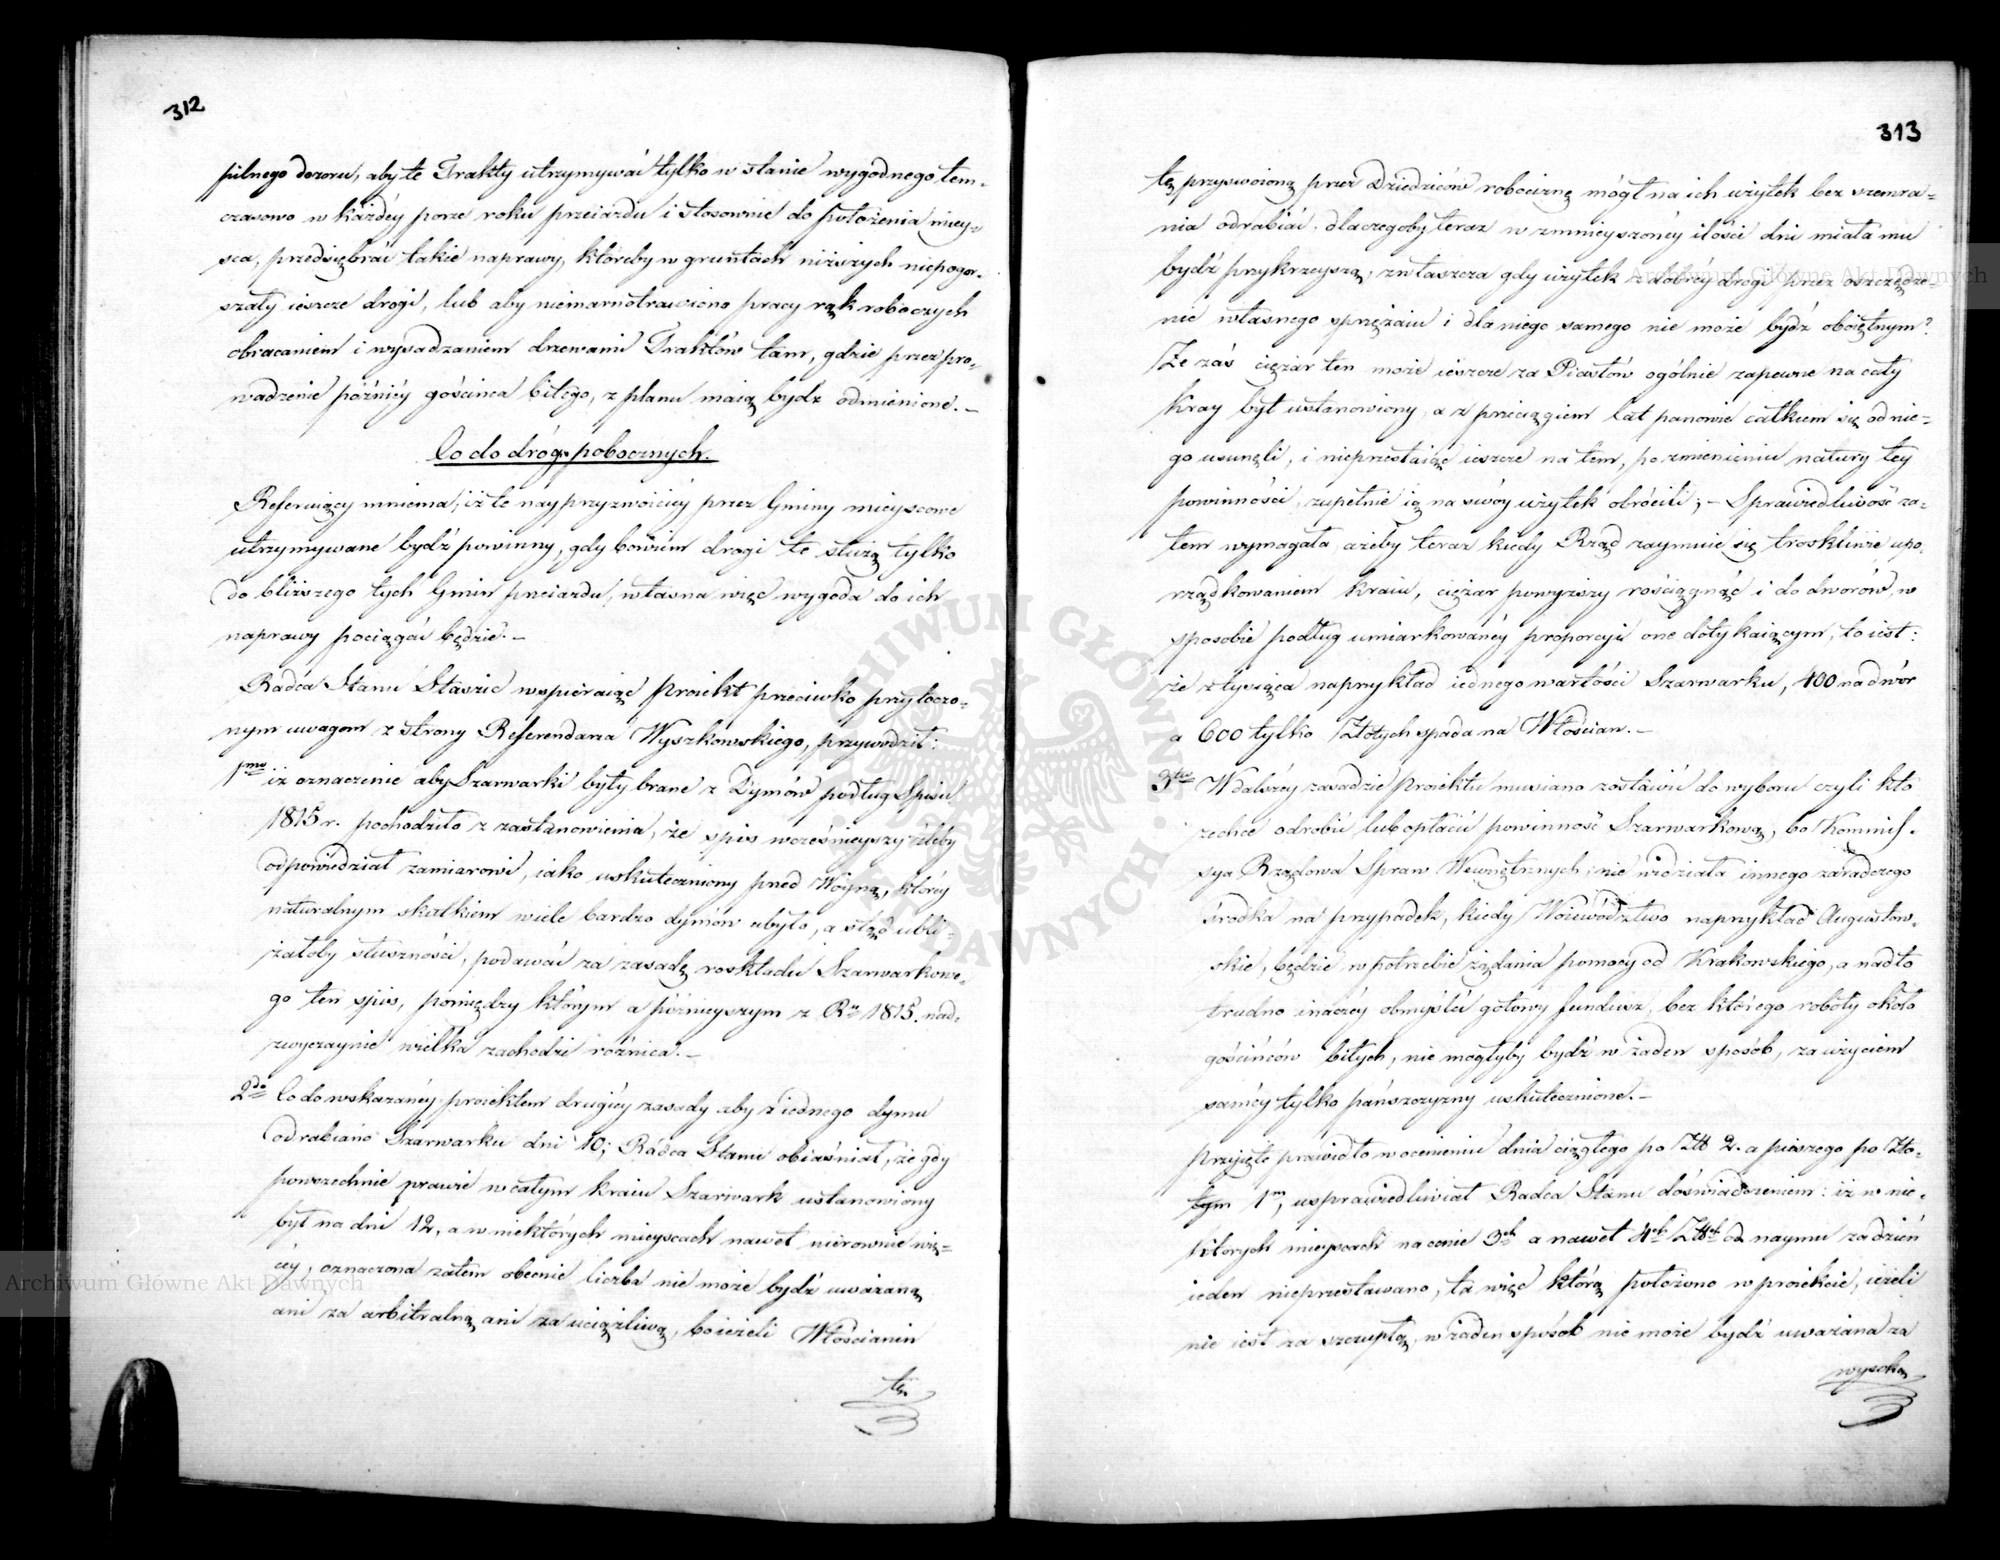 312
pilnego dozoru, aby te Trakty utrzymywać tylko w stanie wygodnego tem-
czasowo w każdéy porze roku przeiazdu i stosownie do położenia miey-
sca, przedsiębrać takie naprawy, któreby w gruntach niższych niepogor-
szały ieszcze drogi, lub aby niemarnotrawiono pracy rąk roboczych
obracaniem i wysadzaniem drzewami Traktów tam, gdzie przez pro-
wadzenie późniéy gościńca bitego, z planu maią bydź odmienione.-
Co do dróg pobocznych.
Referuiący mniema, iż te nayprzyzwoiciéy przez Gminy mieyscowe
utrzymywane bydź powinny, gdy bowiem drogi te służą tylko
do bliższego tych Gmin przeiazdu, własna więc wygoda do ich
naprawy pociągać będzie.-
Radca Stanu Staszic wspieraiąc proiekt przeciwko przytoczo-
nym uwagom z strony Referendarza Wyszkowskiego, przywodził:
1mo iż oznaczenie aby Szarwarki były brane z Dymów podług Spisu
1815 r. pochodziło z zastanowienia, że spis wcześnieyszy źleby
odpowiedział zamiarowi, iako uskuteczniony przed Woyną, któréy
naturalnym skutkiem wiele bardzo dymów ubyło, a stąd ubli-
żałoby słuszności, podawać za zasadę roskładu Szarwarkowe-
go ten spis, pomiędzy którym a późnieyszym z Ru 1815. nad-
zwyczaynie wielka zachodzi różnica.-
2do Co do wskazanéy proiektem drugiéy zasady aby z iednego dymu
odrabiano Szarwarku dni 10; Radca Stanu obiaśniał, że gdy
powszechnie prawie w całym kraiu Szarwark ustanowiony
był na dni 12, a w niektórych mieyscach nawet nierównie wię-
céy, oznaczona zatem obecnie liczba nie może bydź uważaną
ani za arbitralną ani za uciążliwą, bo ieżeli Włościanin
tę
313
tę przyswoioną przez Dziedziców robociznę mógł na ich użytek bez szemra-
nia odrabiać, dlaczegoby teraz w zmnieyszonéy ilości dni miała mu
bydź przykrzeyszą, zwłaszcza gdy użytek z dobréy drogi przez oszczędze-
nie własnego sprzężaiu i dla niego samego nie może bydź oboiętnym?
Że zaś ciężar ten może ieszcze za Piastów ogólnie zapewne na cały
Kray był ustanowiony, a z przeciągiem lat panowie całkiem się od nie-
go usunęli, i nieprzestaiąc ieszcze na tem, po zmienieniu natury téy
powinności, zupełnie ią na swóy użytek obrócili;- Sprawiedliwość za-
tem wymagała ażeby teraz kiedy Rząd zaymuie się troskliwie upo-
rządkowaniem kraiu, ciężar powyższy rościągnąć i do dworów, w
sposobie podług umiarkowanéy proporcyi one dotykaiącym, to iest:
że z tysiąca naprzykład iednego wartości Szarwarku, 400 na dwór
a 600 tylko Złotych spada na Włościan.-
3tio W dalszéy zasadzie Proiektu musiano zostawić do wyboru czyli kto
zechce odrobić lub opłacić powinność Szarwarkową, bo Kommis-
sya Rządowa Spraw Wewnętrznych nie widziała innego zaradczego
Środka na przypadek, kiedy Woiewództwo naprzykład Augustow-
skie, będzie w potrzebie żądania pomocy od Krakowskiego, a nadto
trudno inaczéy obmyślić gotowy fundusz, bez którego roboty około
gościńców bitych, nie mogłyby bydź w żaden sposób, za użyciem
saméy tylko pańszczyzny uskutecznione.-
Przyięte prawidło w ocenieniu dnia ciągłego po Złł 2. a pieszego po Zło-
tym 1m, usprawiedliwiał Radca Stanu doświadczeniem: iż w nie-
których mieyscach na cenie 3ch a nawet 4ch Złłch od naymu za dzień
ieden nieprzestawano, ta więc którą położono w proiekcie, ieżeli
nie iest za szczupłą, w żaden sposób nie może bydź uważana za
wysoką